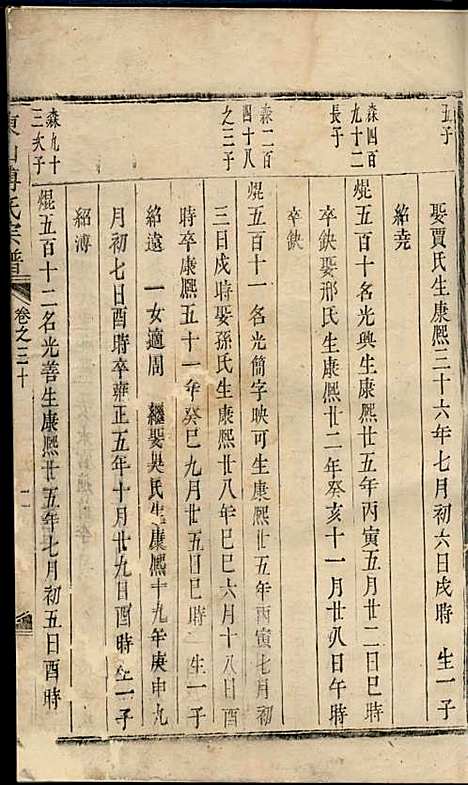 五子
娶賈氏生康熙三十六年七月初六日戌時　生一子
紹堯
森四百
九十二
長子
焜五百十名光興生康熙廿五年丙寅五月廿二日巳時
卒缺娶邢氏生康熙廿二年癸亥十一月廿八日午時
卒缺
森二百
四十八
之三子
焜五百十一名光簡字映可生康熙廿五年丙寅七月初
三日戌時娶孫氏生康熙廿八年己巳六月十八日酉
時卒康熙五十一年癸巳九月廿五日巳時　生一子
紹遠　一女適周　繼娶吳氏生康熙十九年庚申九
月初七日酉時卒雍正五年十月廿九日酉時生一子
紹溥
森九十
三次子
焜五百十二名光善生康熙廿五年七月初五日酉時
東山傅氏宗譜
卷之三十